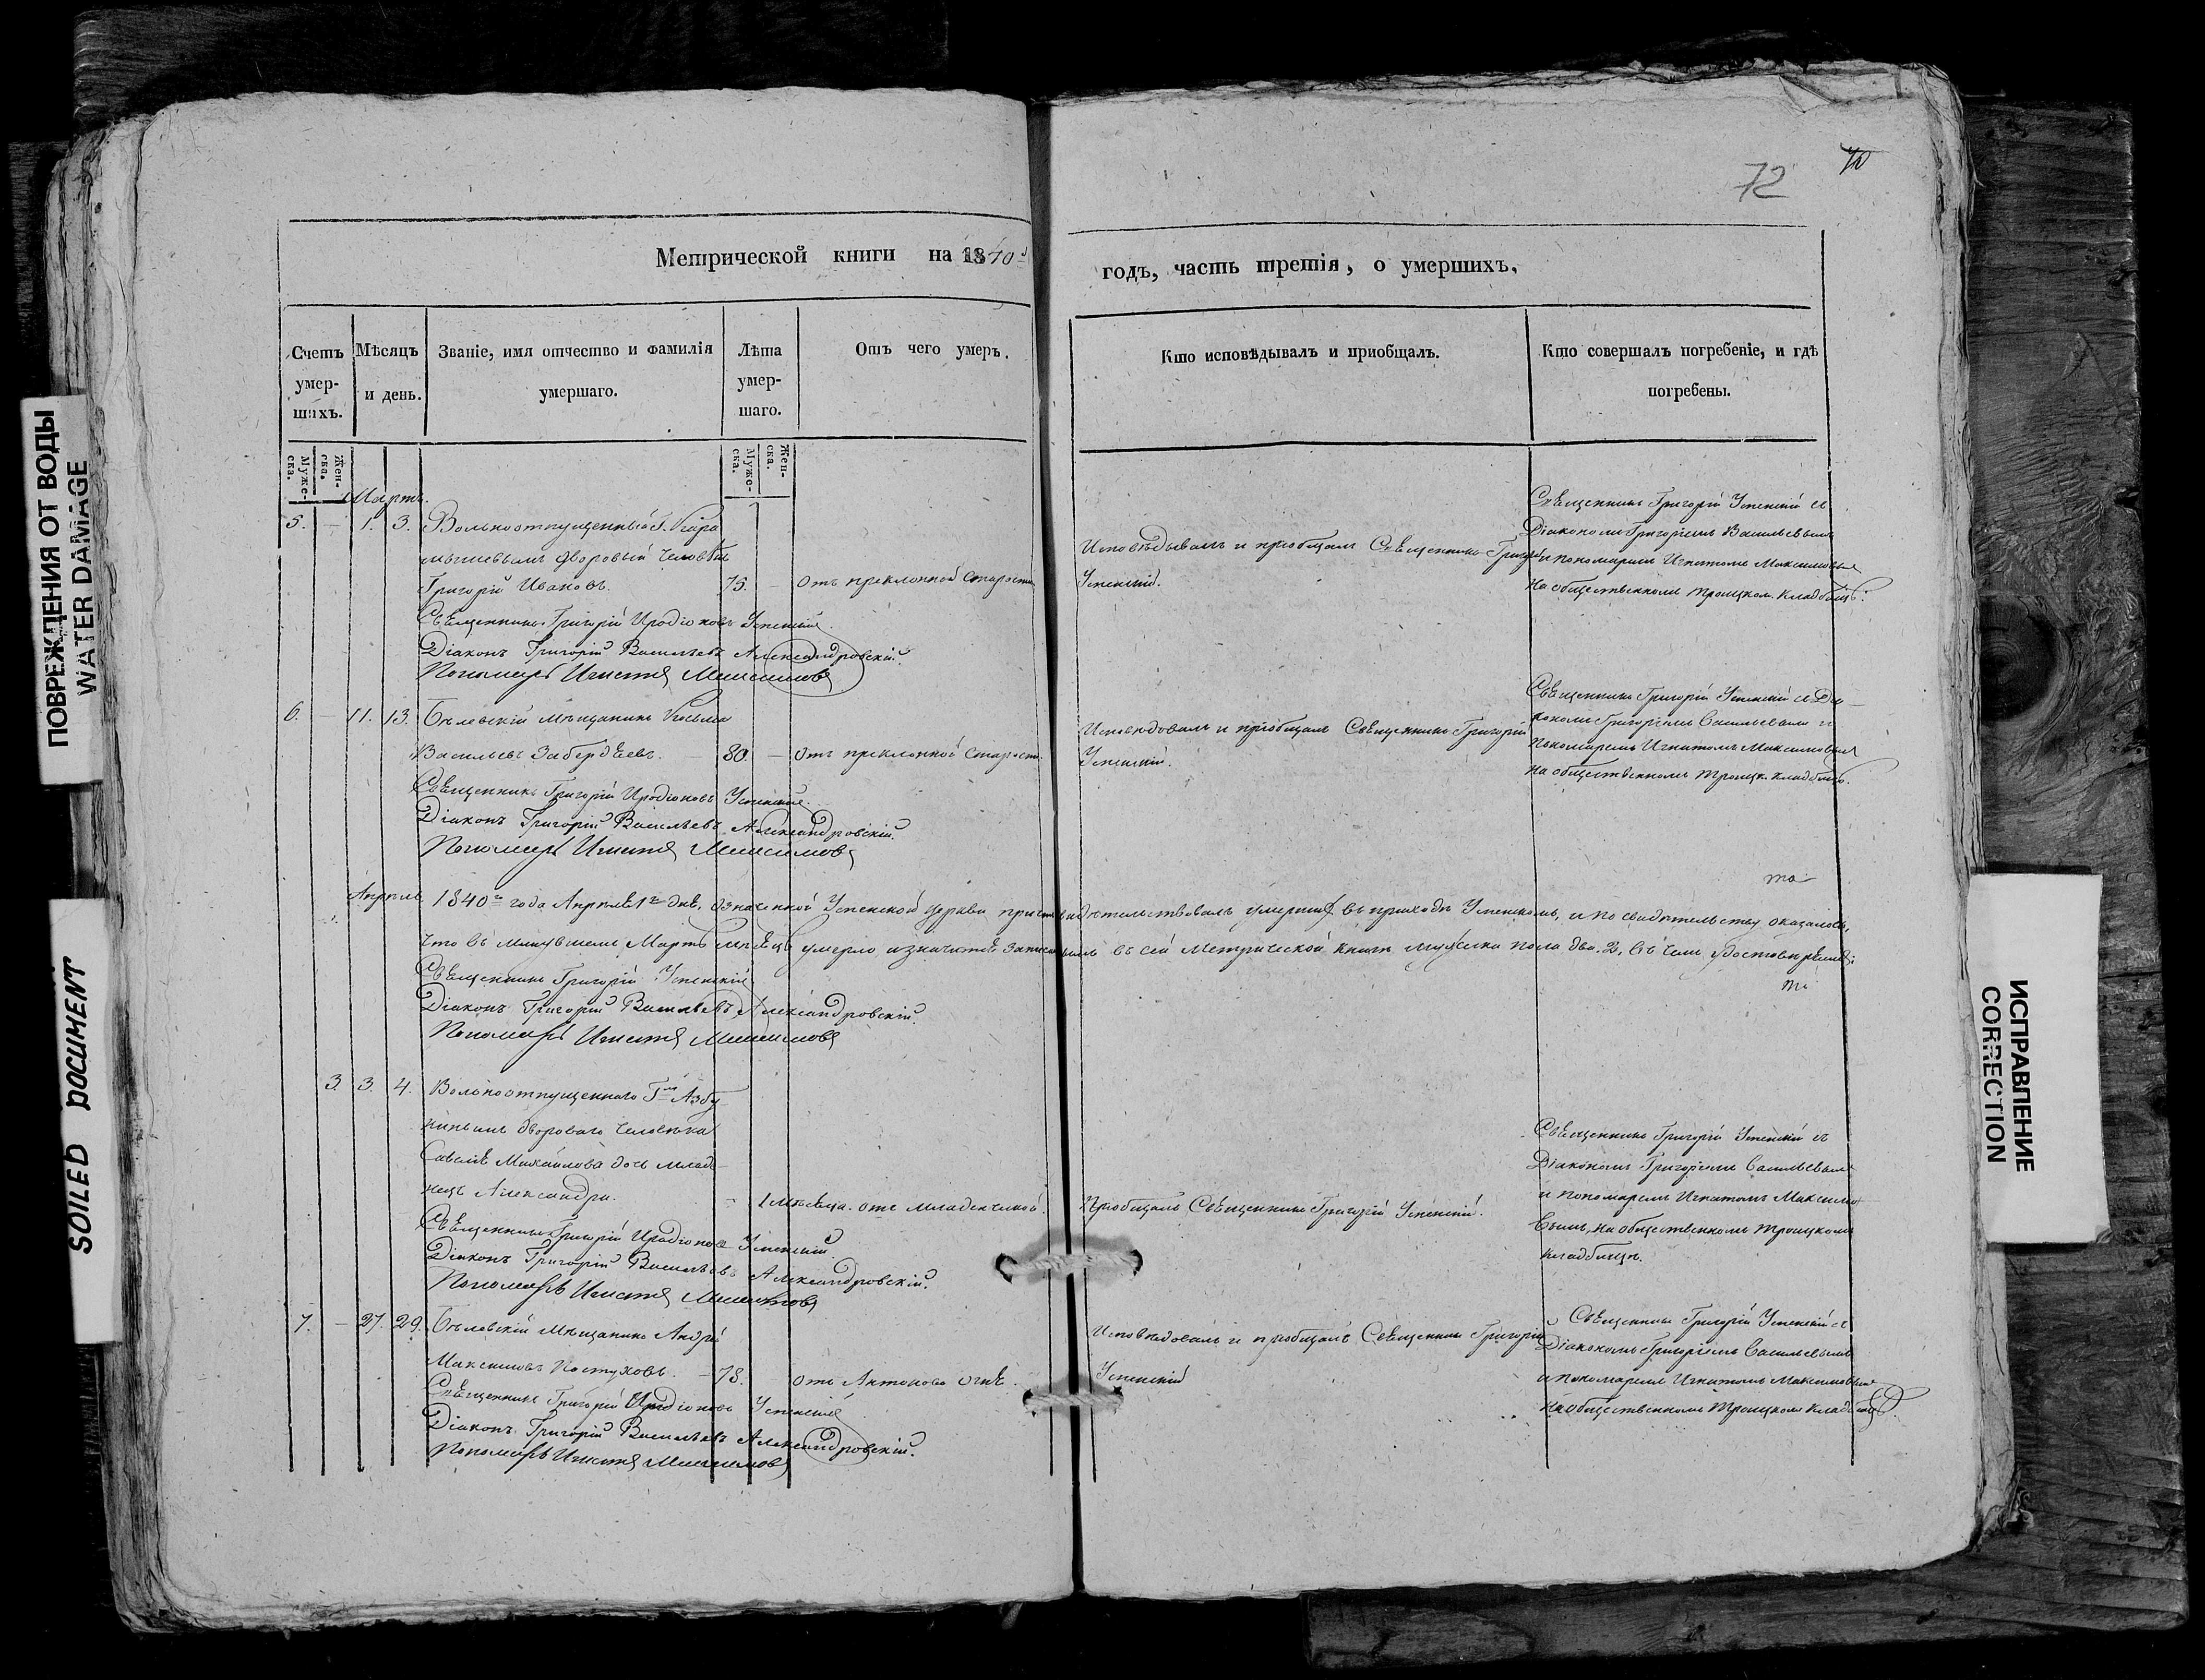 ПОВРЕЖДЕНИЯ ОТ ВОДЫ
WATER DAMAGE
SOILED DOCUMENT
ИСПРАВЛЕНИЕ
CORRECTION
72
Метрической книги на 1840
годъ, часть третія, о умершихъ.
Счетъ умер-шихъ.
Мѣсяцъ и день.
Званіе, имя отчество и фамилія умершаго.
Лѣта умер-шаго.
Отъ чего умеръ.
Кто исповѣдывалъ и пріобщалъ.
Кто совершалъ погребеніе, и гдѣ погребены.
Муже-ска.
Жен-ска.
Муже-ска.
Жен-ска.
Мартъ.
5. — 1. 3. Вольноотпущенный Г.
дворовый человѣкъ
Григорій Ивановъ. 75. — Отъ преклонной старости
Исповѣдывалъ и пріобщалъ Священникъ Григорій
Успенскій.
Священникъ Григорій Успенскій съ
Діакономъ Григоріемъ Васильевымъ
и пономаремъ Игнатомъ Максимовымъ
на общественномъ Троицком кладбищѣ.
Священникъ Григорій Иродіоновъ Успенскій.
Діаконъ Григорій Васильевъ Александровскій.
Пономарь Игнатъ Максимовъ
6. — 11. 13. Бѣлевскій мѣщанинъ Козьма
Васильевъ — 80. — Отъ преклонной старости.
Исповѣдовалъ и пріобщалъ Священникъ Григорій
Успенскій.
Священникъ Григорій Успенскій съ Діа-
кономъ Григоріемъ Васильевымъ и
Пономаремъ Игнатомъ Максимовымъ
на общественномъ Троицк. кладбищѣ.
Священникъ Григорій Иродіоновъ Успенскій.
Діаконъ Григорій Васильевъ Александровскій.
Пономарь Игнатъ Максимовъ
та
Апрѣль 1840го года Апрѣля 1го дня, означенной Успенской церкви причтъ свидѣтельствовалъ умершихъ въ приходѣ Успенскомъ, и по свидѣтельству оказалось,
что въ минувшемъ Мартѣ мѣсяцѣ умерло и значится записанныхъ въ сей Метрической книгѣ мужска пола два. 2, въ чемъ удостовѣряемъ:
Священникъ Григорій Успенскій
Діаконъ Григорій Васильевъ Александровскій.
Пономарь Игнатъ Максимовъ
3. 3. 4. Вольноотпущеннаго Гна
двороваго человѣка
Савелія Михайлова дочь млад-
нецъ Александра. — 1 мѣсяца. отъ младенческой.
Пріобщалъ Священникъ Григорій Успенскій.
Священникъ Григорій Успенскій съ
Діакономъ Григоріемъ Васильевымъ
и пономаремъ Игнатомъ Максимо-
вымъ, на общественномъ Троицкомъ
кладбищѣ.
Священникъ Григорій Иродіоновъ Успенскій
Діаконъ Григорій Васильевъ Александровскій.
Пономарь Игнатъ Максимовъ
7. — 27. 29. Бѣлевскій мѣщанинъ Андрей
Максимовъ Пастуховъ. — 78. отъ Антонова огня.
Исповѣдовалъ и пріобщалъ Священникъ Григорій
Успенскій
Священникъ Григорій Успенскій съ
Діакономъ Григоріемъ Васильевымъ
и пономаремъ Игнатомъ Максимовымъ
на общественномъ Троицкомъ кладбищѣ.
Священникъ Григорій Иродіоновъ Успенскій
Діаконъ Григорій Васильевъ Александровскій.
Пономарь Игнатъ Максимовъ